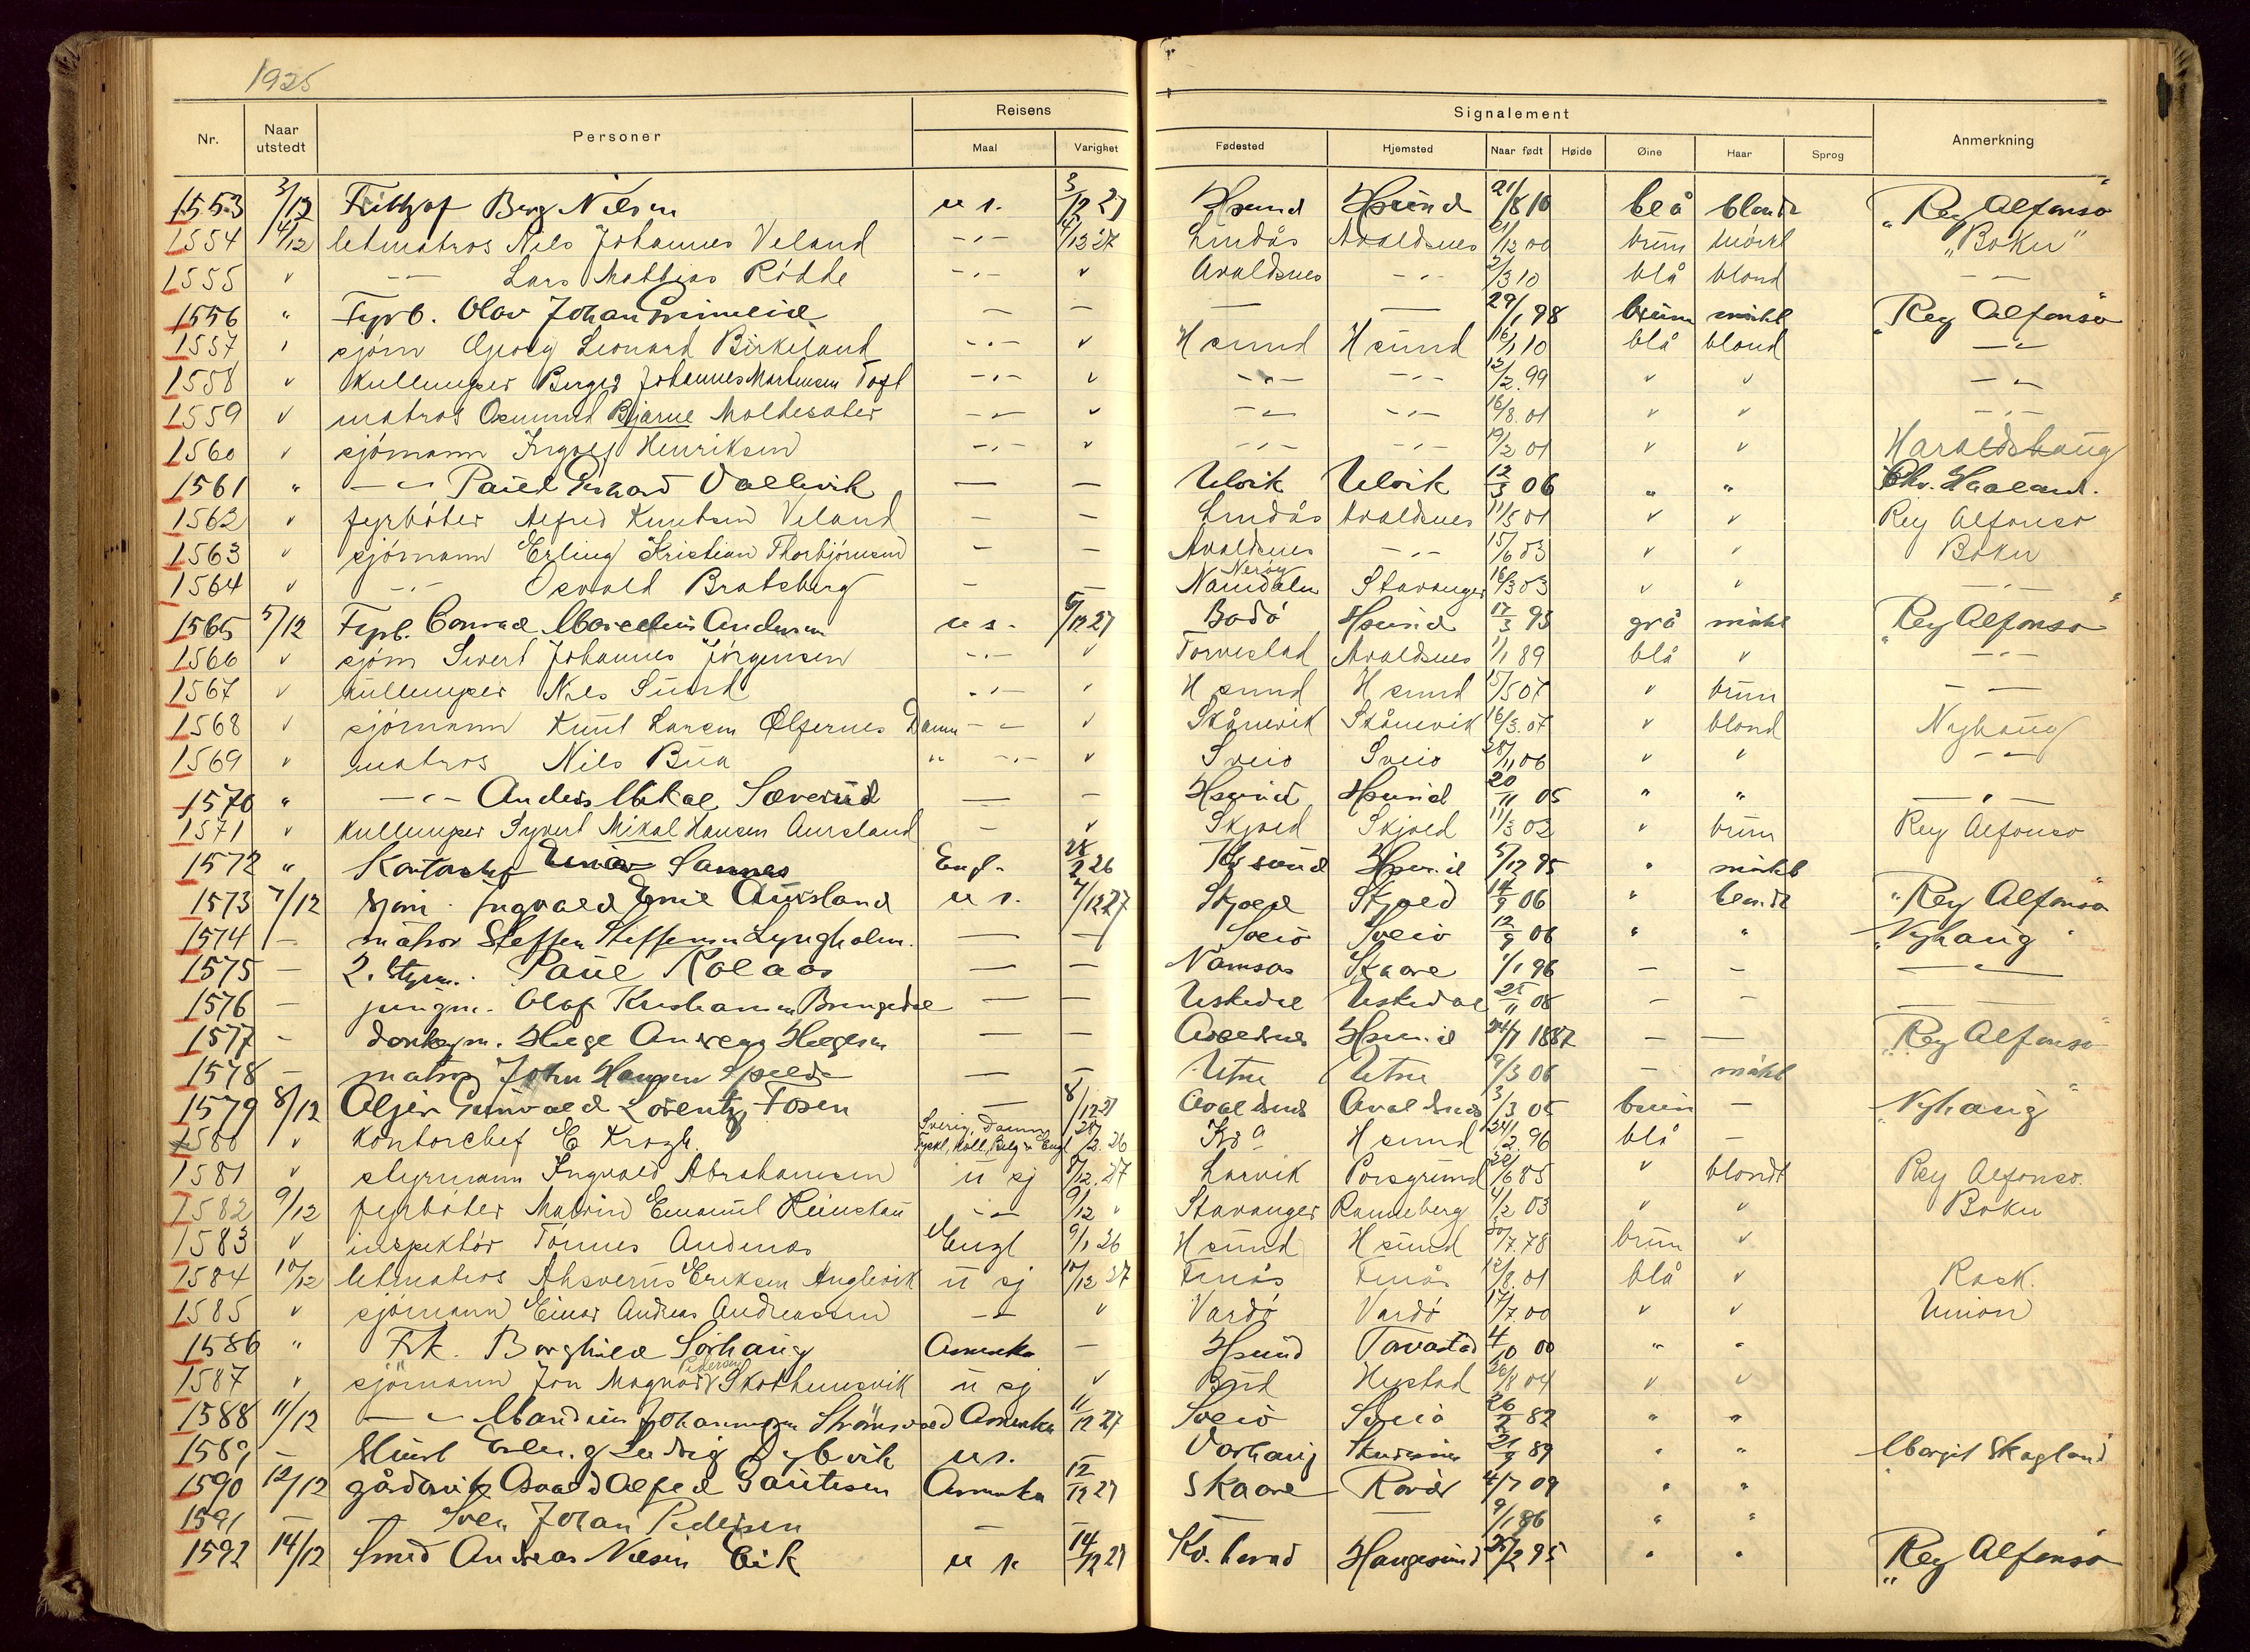 1925
Nr. Naar utstedt Personer Reisens Maal Varighet Signalement Fødested Hjemsted Naar født Høide Øine Haar Sprog Anmerkning
1553 3/12 Berg Nilsen u s. 3/12 27 Hsund Hsund 21/8 10 blå blondt "Rey Alfonso"
1554 4/12 letmatros Nils Johannes Veland -"- 4/12 27 Lindås Avaldsnes 21/12 00 brun mörkt "Boku"
1555 " -"- Lars Mattias Rödde -"- " Avaldsnes -"- 2/3 10 blå blond -"-
1556 " Fyrb. Olav Johan — — — — 29/1 98 brun mörkt "Rey Alfonso"
1557 " sjöm Georg Leonard Birkeland -"- " Hsund Hsund 16/1 10 blå blond -"-
1558 " kullemper Birger Johannes Martinsen Toft -"- " -"- -"- 12/2. 99 " " -"-
1559 " matros Osmund Bjarne Moldesæter -"- " -"- -"- 16/8. 01 " " -"-
1560 " sjömann Ingolf Henriksen -"- " -"- -"- 19/2 01 " " Haraldshaug
1561 " -"- Paul Vallevik — — Ulvik Ulvik 12/3 06 " " Chr. Haaland.
1562 " fyrböter Alfred Knutsen Veland — — Lindås Avaldsnes 11/5 01 " " Rey Alfonso
1563 " sjömann Erling Kristian Thorbjörnsen — — Avaldsnes -"- 15/6 03 " " Boku
1564 " -"- Osvald Bratsberg — — Nerøy Namdalen Stavanger 16/3 03 " " -"-
1565 5/12 Fyrb. Conrad Marelius Andersen u s. 5/12 27 Bodö Hsund 17/3 93 grå mörkt "Rey Alfonso"
1566 " sjöm Sivert Johannes Jörgensen -"- " Torvestad Avaldsnes 1/1 89 blå " -"-
1567 " kullemper Nils Sund -"- " Hsund Hsund 15/5 07 " brun — —
1568 " sjömann Knut Larsen Ölfernes Danm -"- " Skånevik Skånevik 16/3. 07 " blond Nyhaug
1569 " matros Nils Bua " -"- " Sveio Sveio 28/11 06 " " -"-
1570 " -"- Anders Mikal Sæverud — — Hsund Hsund 20/11 05 " " -"-
1571 " kullemper Syvert Mikal Hansen Aursland — " Skjold Skjold 11/3 02 " brun Rey Alfonso
1572 " Kontorchef Einar Sannes Engl. 28/2 26 Krsund Hsund 5/12 95 " mörkt
1573 7/12 sjöm. Ingvald Emil Aursland u s. 7/12 27 Skjold Skjold 14/9 06 " blondt "Rey Alfonso"
1574 — matros Steffen Steffensen Lyngholm. — — Sveio Sveio 12/9 06 " " "Nyhaug"
1575 — 2. Styrm. Paul Kolaas — — Namsos Skaare 1/1 96 — — -"-
1576 — jungm. Olaf Kristiansen — — Uskedal Uskedal 25/11 08 — — — —
1577 — donkeym. Helgesen — — Avaldsnes Hsund 24/7 1887 — — "Rey Alfonso"
1578 — matros John Hansen — — Utne Utne 9/3 06 — mörkt
1579 8/12 Lorentz Fosen — 8/12 27 Avaldsnes Avaldsnes 3/3 05 brun — "Nyhaug"
1580 " kontorchef E Krogh. Sverig, Danm, Tyskl, Holl, Belg & Engl 28/2 26 Kra Hsund 24/2. 96 blå —
1581 " styrmann Ingvald Abrahamsen u sj 8/12. 27 Larvik Porsgrund 22/6 85 " blondt Rey Alfonso.
1582 9/12 fyrböter Emanuel -"- 9/12 " Stavanger Ranneberg 4/2 03 " " Boku
1583 " inspektör Tönnes Andenæs Engl 9/1 26 Hsund Hsund 30/7. 78 brun "
1584 10/12 letmatros Ahsverus Eriksen Anglevik u sj 10/12 27 Finås Finås 12/8. 01 blå " Rask.
1585 " sjömann Einar Andreas Andreassen -"- " Vardö Vardö 17/7. 00 " " Union
1586 " Frk. Borghild Sörhaug Amerika — Hsund Torvastad 4/10 00 " "
1587 " sjömann Jon Magnar Pedersen Skothemsvik u sj " Bud Hustad 26/8 04 " "
1588 11/12 -"- Johannesen Strömsvold Amerika 11/12 27 Sveio Sveio 26/2 82 " "
1589 — Erling Ludvig Dybvik u s. Varhaug 21/9 89 " " Margit Skogland
1590 12/12 Osvald Alfred Gautesen Amerika 12/12 27 Skaare Rövær 4/7 09 " "
1591 — — Sven Johan Pedersen — — — — 9/1 86 " "
1592 14/12 Smed Andreas Nilsen Eik u s 14/12 27 Kv.herad Haugesund 25/2 95 " " "Rey Alfonso